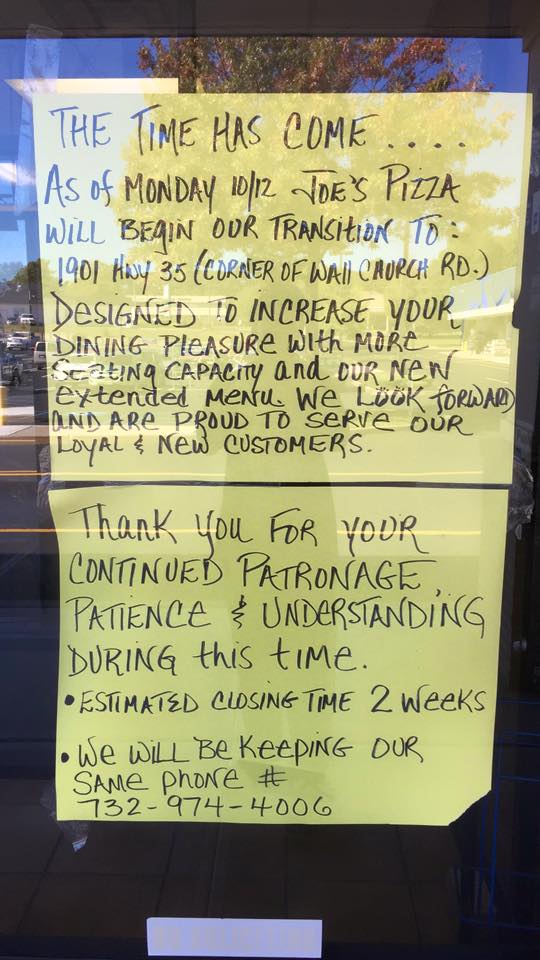 THE TIME HAS COME ....
As of MONDAY 10/12 JOE'S PIZZA
WILL BEGIN OUR TRANSITION TO:
1901 HWY 35 (CORNER OF WAll CHURCH RD.)
DESIGNED TO INCREASE YOUR
DINING PLEASURE WITH MORE
SEATING CAPACITY and OUR NEW
extended MENU. WE LOOK forWARD
AND ARE PROUD TO SERVE OUR
LOYAL & NEW CUSTOMERS.
Thank you FOR YOUR
CONTINUED PATRONAGE,
PATIENCE & UNDERSTANDING
DURING this time.
• ESTIMATED CLOSING TIME 2 WEEKS
• WE WILL BE KEEPING OUR
SAME PHONE #
732-974-4006